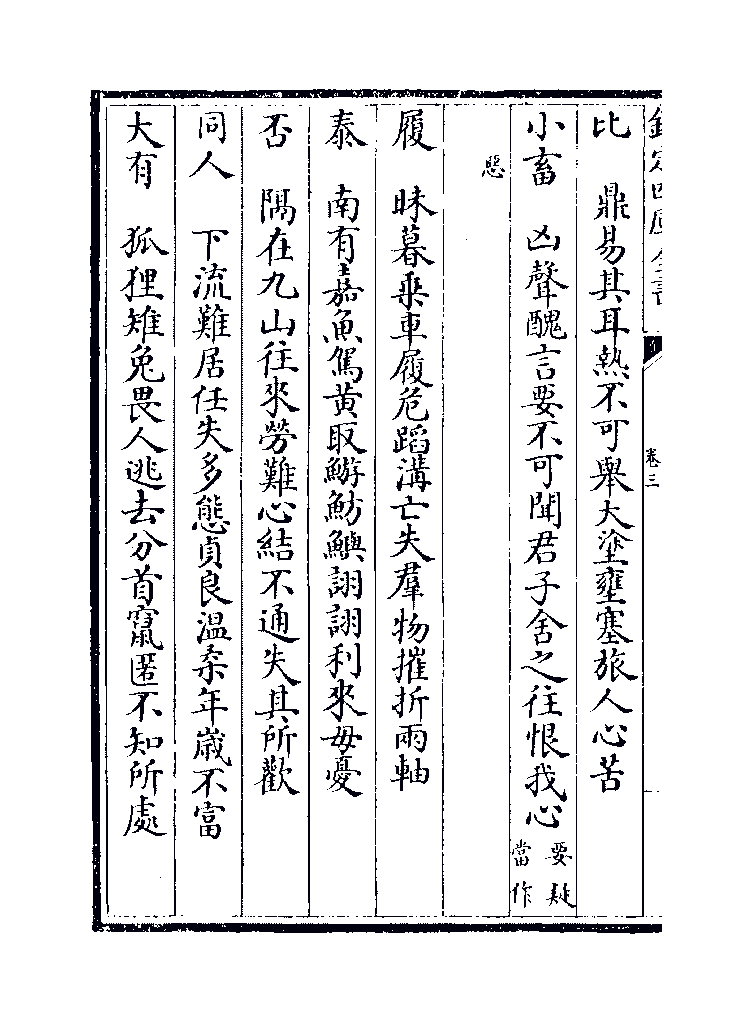 欽定四庫全書
卷三
比　鼎易其耳熱不可舉大塗壅塞旅人心苦
小畜　凶聲醜言要不可聞君子舍之往恨我心要疑當作
惡
履　昧暮乘車履危蹈溝亡失羣物摧折兩軸
泰　南有嘉魚駕黃取鰌魴鱮詡詡利來毋憂
否　隅在九山往來勞難心結不通失其所歡
同人　下流難居任失多態貞良溫柔年歲不富
大有　狐狸雉兔畏人逃去分首竄匿不知所處